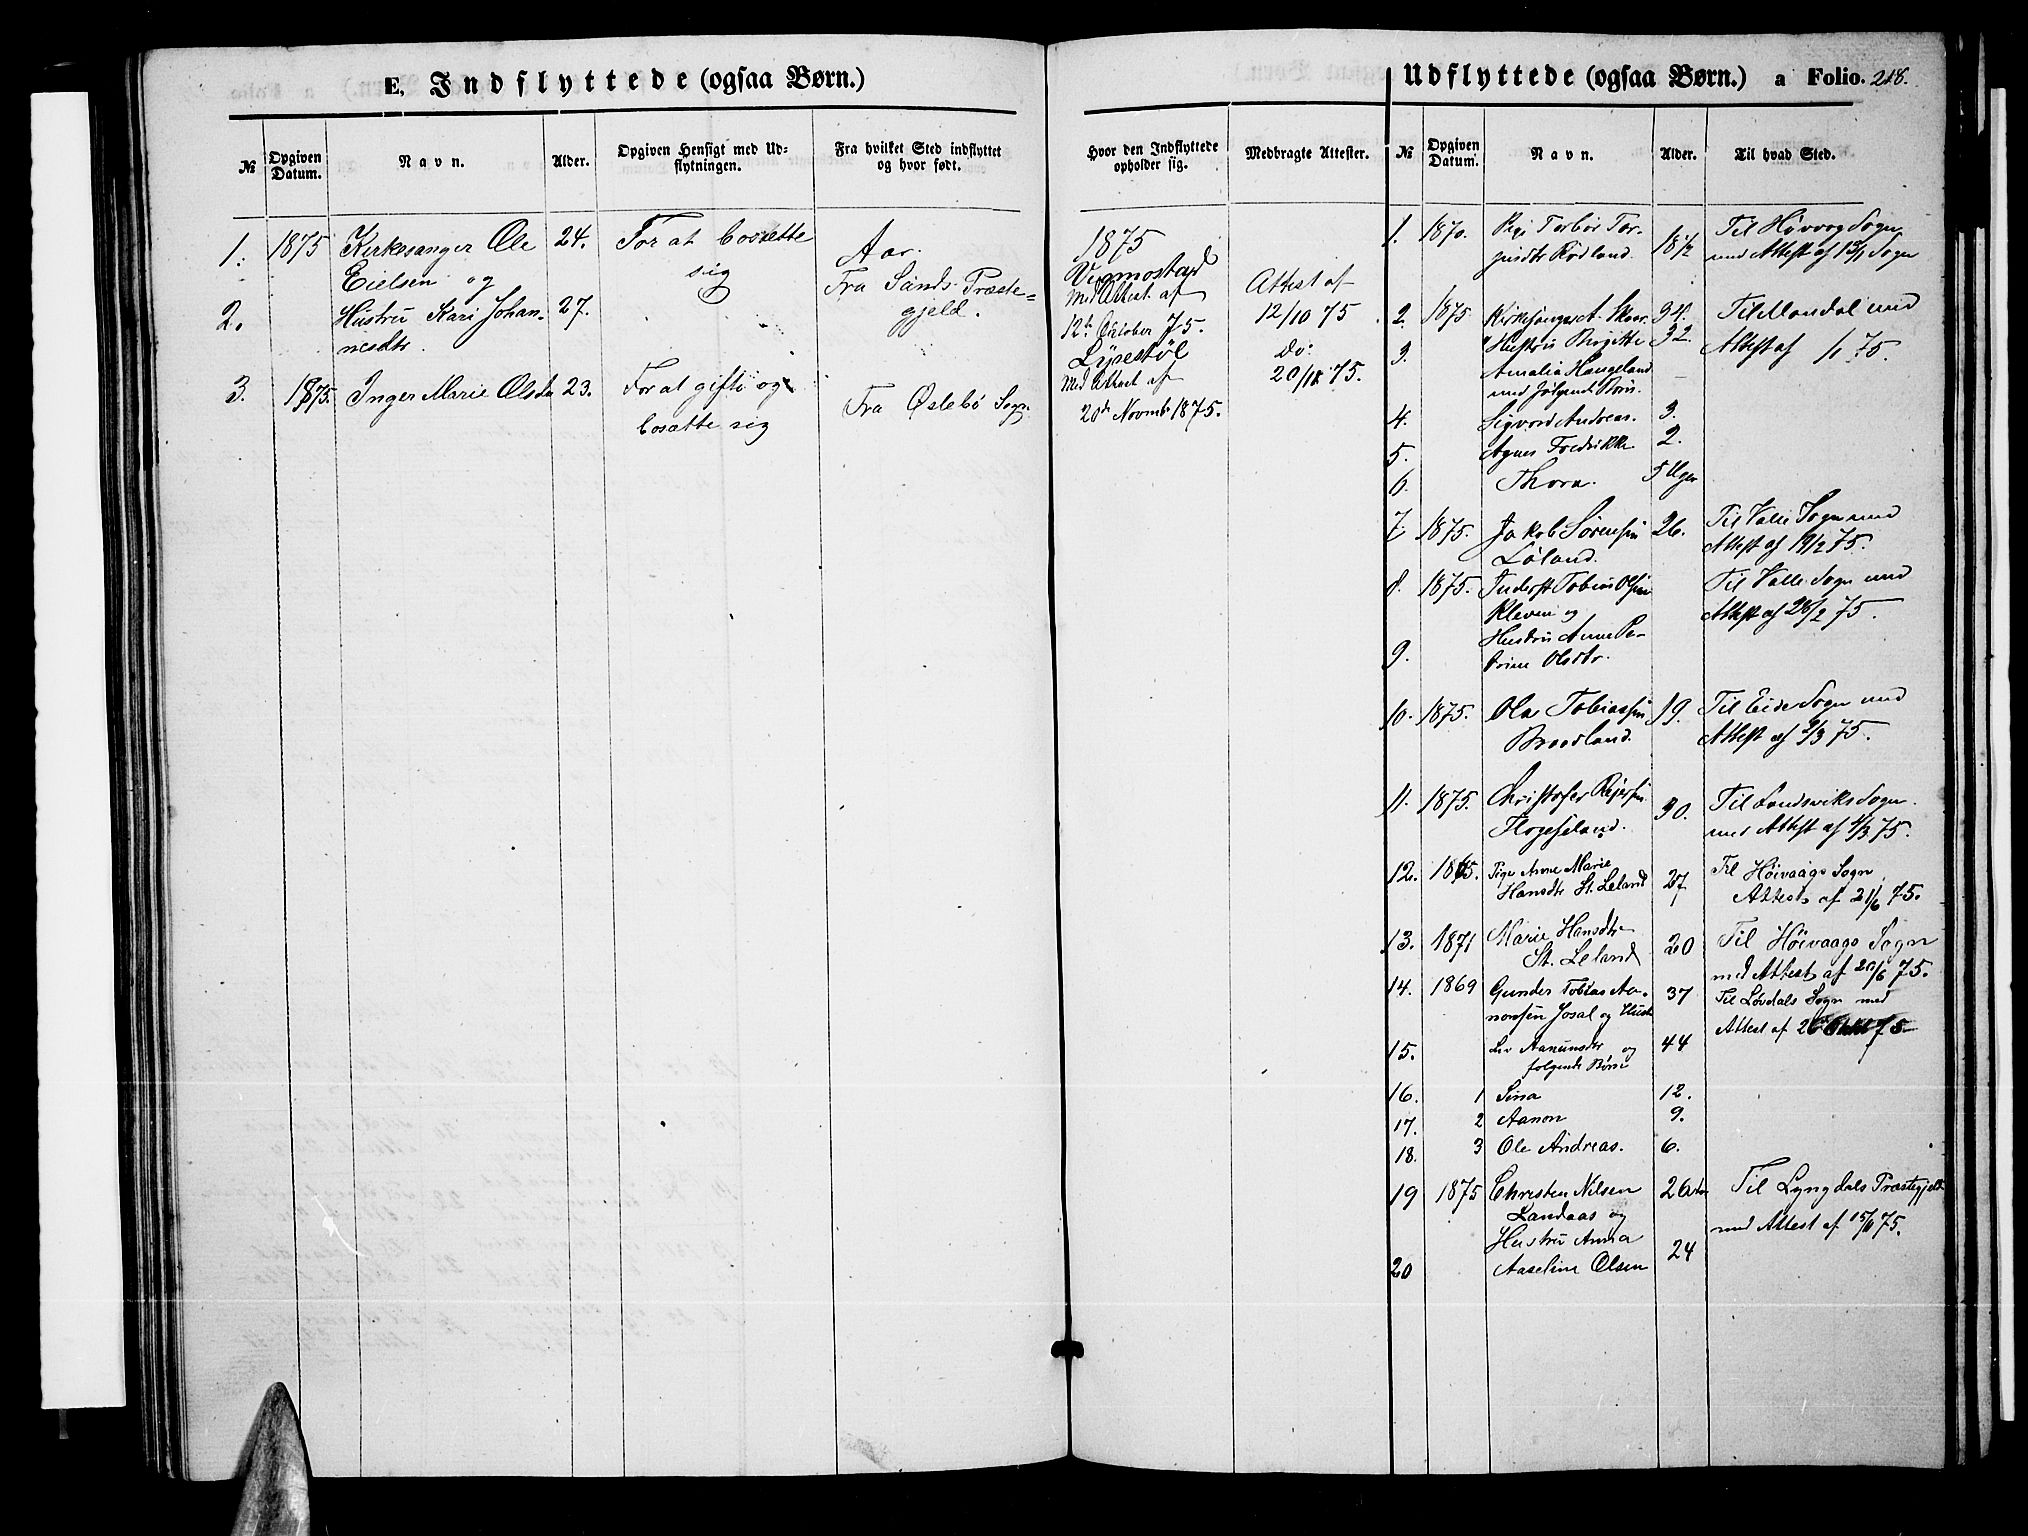 E, Indflyttede (ogsaa Børn.)
№ Opgiven Datum. Navn. Alder. Opgiven Hensigt med Udflytningen. Fra hvilket Sted indflyttet og hvor født.
1. 1875 Kirkesanger Ole 24. For at bosætte
Eielsen og sig Aas.
Fra Sands Præste-
2. Hustru Kari Johan- 27. gjeld.
nesdtr.
3. 1875. Inger Marie Olsdr 23. For at gifte og
bosætte sig Fra Øslebö Sogn
Hvor den Indflyttede opholder sig. Medbragte Attester.
1875
Vigmostad Attest af
med Attest af 12/10 75
12te October 75.
Lyestöl Do:
med Attest af 20/11 75.
20de Novmb 1875.
Udflyttede (ogsaa Børn.) a Folio. 218.
№ Opgiven Datum. Navn. Alder. Til hvad Sted.
1. 1870. Pige Torbor Tor- 18½ Til Høvvog Sogn
Rødland. med Attest af
2. 1875 Kirkesanger A. 34. Til Mandal med
3. Hustru Birgitte 32. Attest af 75.
Amalia Haugeland
med følgende Börn.
4. Sigvord Andreas. 3.
5. Agnes Fredrikke 2.
6. Thora. 5 Uger
7. 1875. Jakob Sørensen 26. Til Valle Sogn med
Löland. Attest af 19/2 75.
8. 1875. Inderst Tobias Olsen Til Valle Sogn med
Kleven og Attest af 28/2 75.
9. Hustru Anne Pe-
trine Olsdtr.
10. 1875. Ola Tobiassen 19. Til Eide Sogn med
Braadland. Attest af 9/3 75.
11. 1875. Christofer Rejersen 30. Til Landsviks Sogn.
med Attest af 4/3 75.
12. 1875. Pige Anne Marie 27 Til Höivaags Sogn
Hansdtr St. Leland Attest af 21/6 75.
13. 1871 Marie Hansdtr 20 Til Höivaags Sogn
St. Leland med Attest af 21/6 75.
14. 1869 Gunder Tobias Aa- 37 Til Lövdals Sogn med
nonsen Josal og Hust Attest af
15. Liv Aanunsdtr og 44
følgende Börn
16. 1 Sina 12.
17. 2 Aanon 9.
18. 3 Ole Andreas. 6.
19 1875 Christen Nilsen 26 Til Lyngdals Præstegjeld
Landaas og med Attest af 15/11 75.
Hustru Anna 24
20 Aaseline Olsen